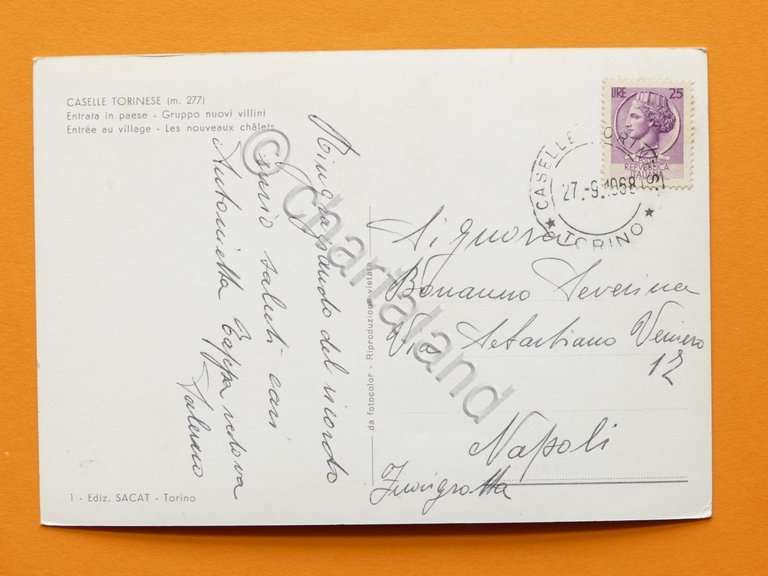 CASELLE TORINESE (m. 277)
Entrata in paese - Gruppo nuovi villini
Entrée au village - Les nouveaux châlets
Ringraziando del ricordo
invio saluti cari
Antonietta Zappa vedova
Salerno
1 - Ediz. SACAT - Torino
da fotocolor - Riproduzione vietata
LIRE 25
REPVBBLICA
ITALIANA
CASELLE TORINESE
27.-9.1968
* TORINO *
Signora
Bonanno Severina
Via Sebastiano Veniero
12
Napoli
Fuorigrotta
© chartaland